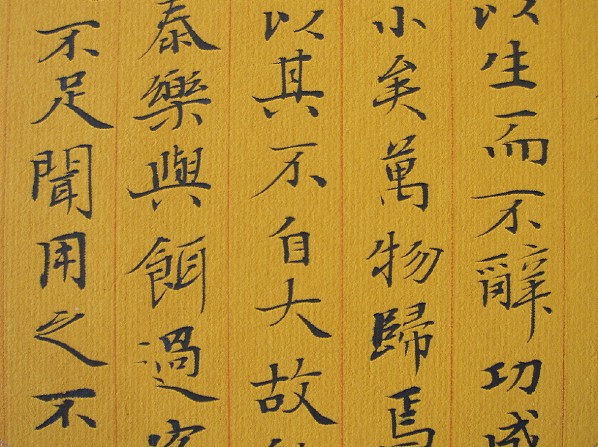 以生而不辭功成
小矣萬物歸焉
以其不自大故
泰樂與餌過客
不足聞用之不